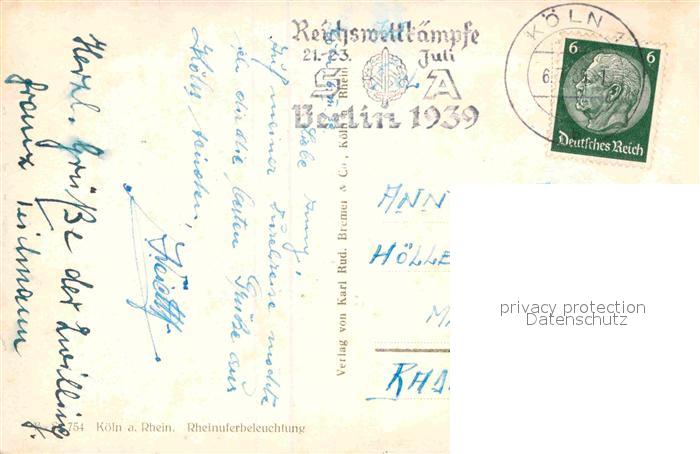 Reichswettkämpfe
21.-23. Juli
SA
Berlin 1939
KÖLN 1
6
6
Deutsches Reich
Liebe Anny!
Auf meiner Durchreise möchte
ich dir die besten Grüße aus
Köln senden.
Herzl. Grüße der Zwilling
Franz
Verlag von Karl Rud. Bremer & Co., Köln a. Rhein
ANN
HÖLLE
MA
RHA
privacy protection
Datenschutz
754 Köln a. Rhein. Rheinuferbeleuchtung